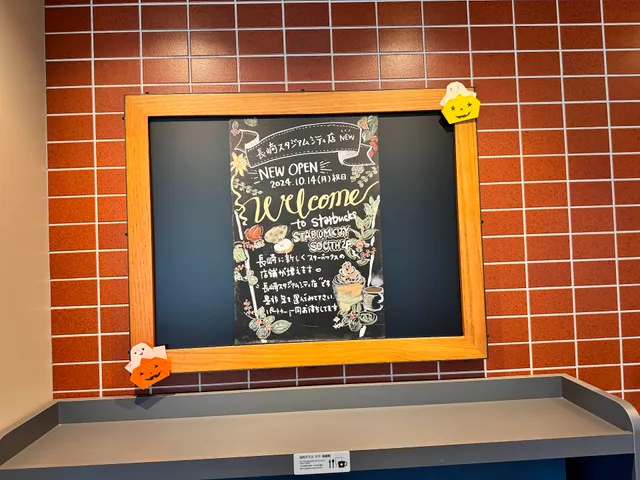 長崎スタジアムシティ店 NEW
NEW OPEN
2024.10.14(月)祝日
Welcome
to Starbucks
STADIUMCITY
SOUTH2F
長崎に新しくスターバックスの
店舗が増えます
長崎スタジアムシティ店です
是非足を運んでみてください
パートナー一同お待ちしてます